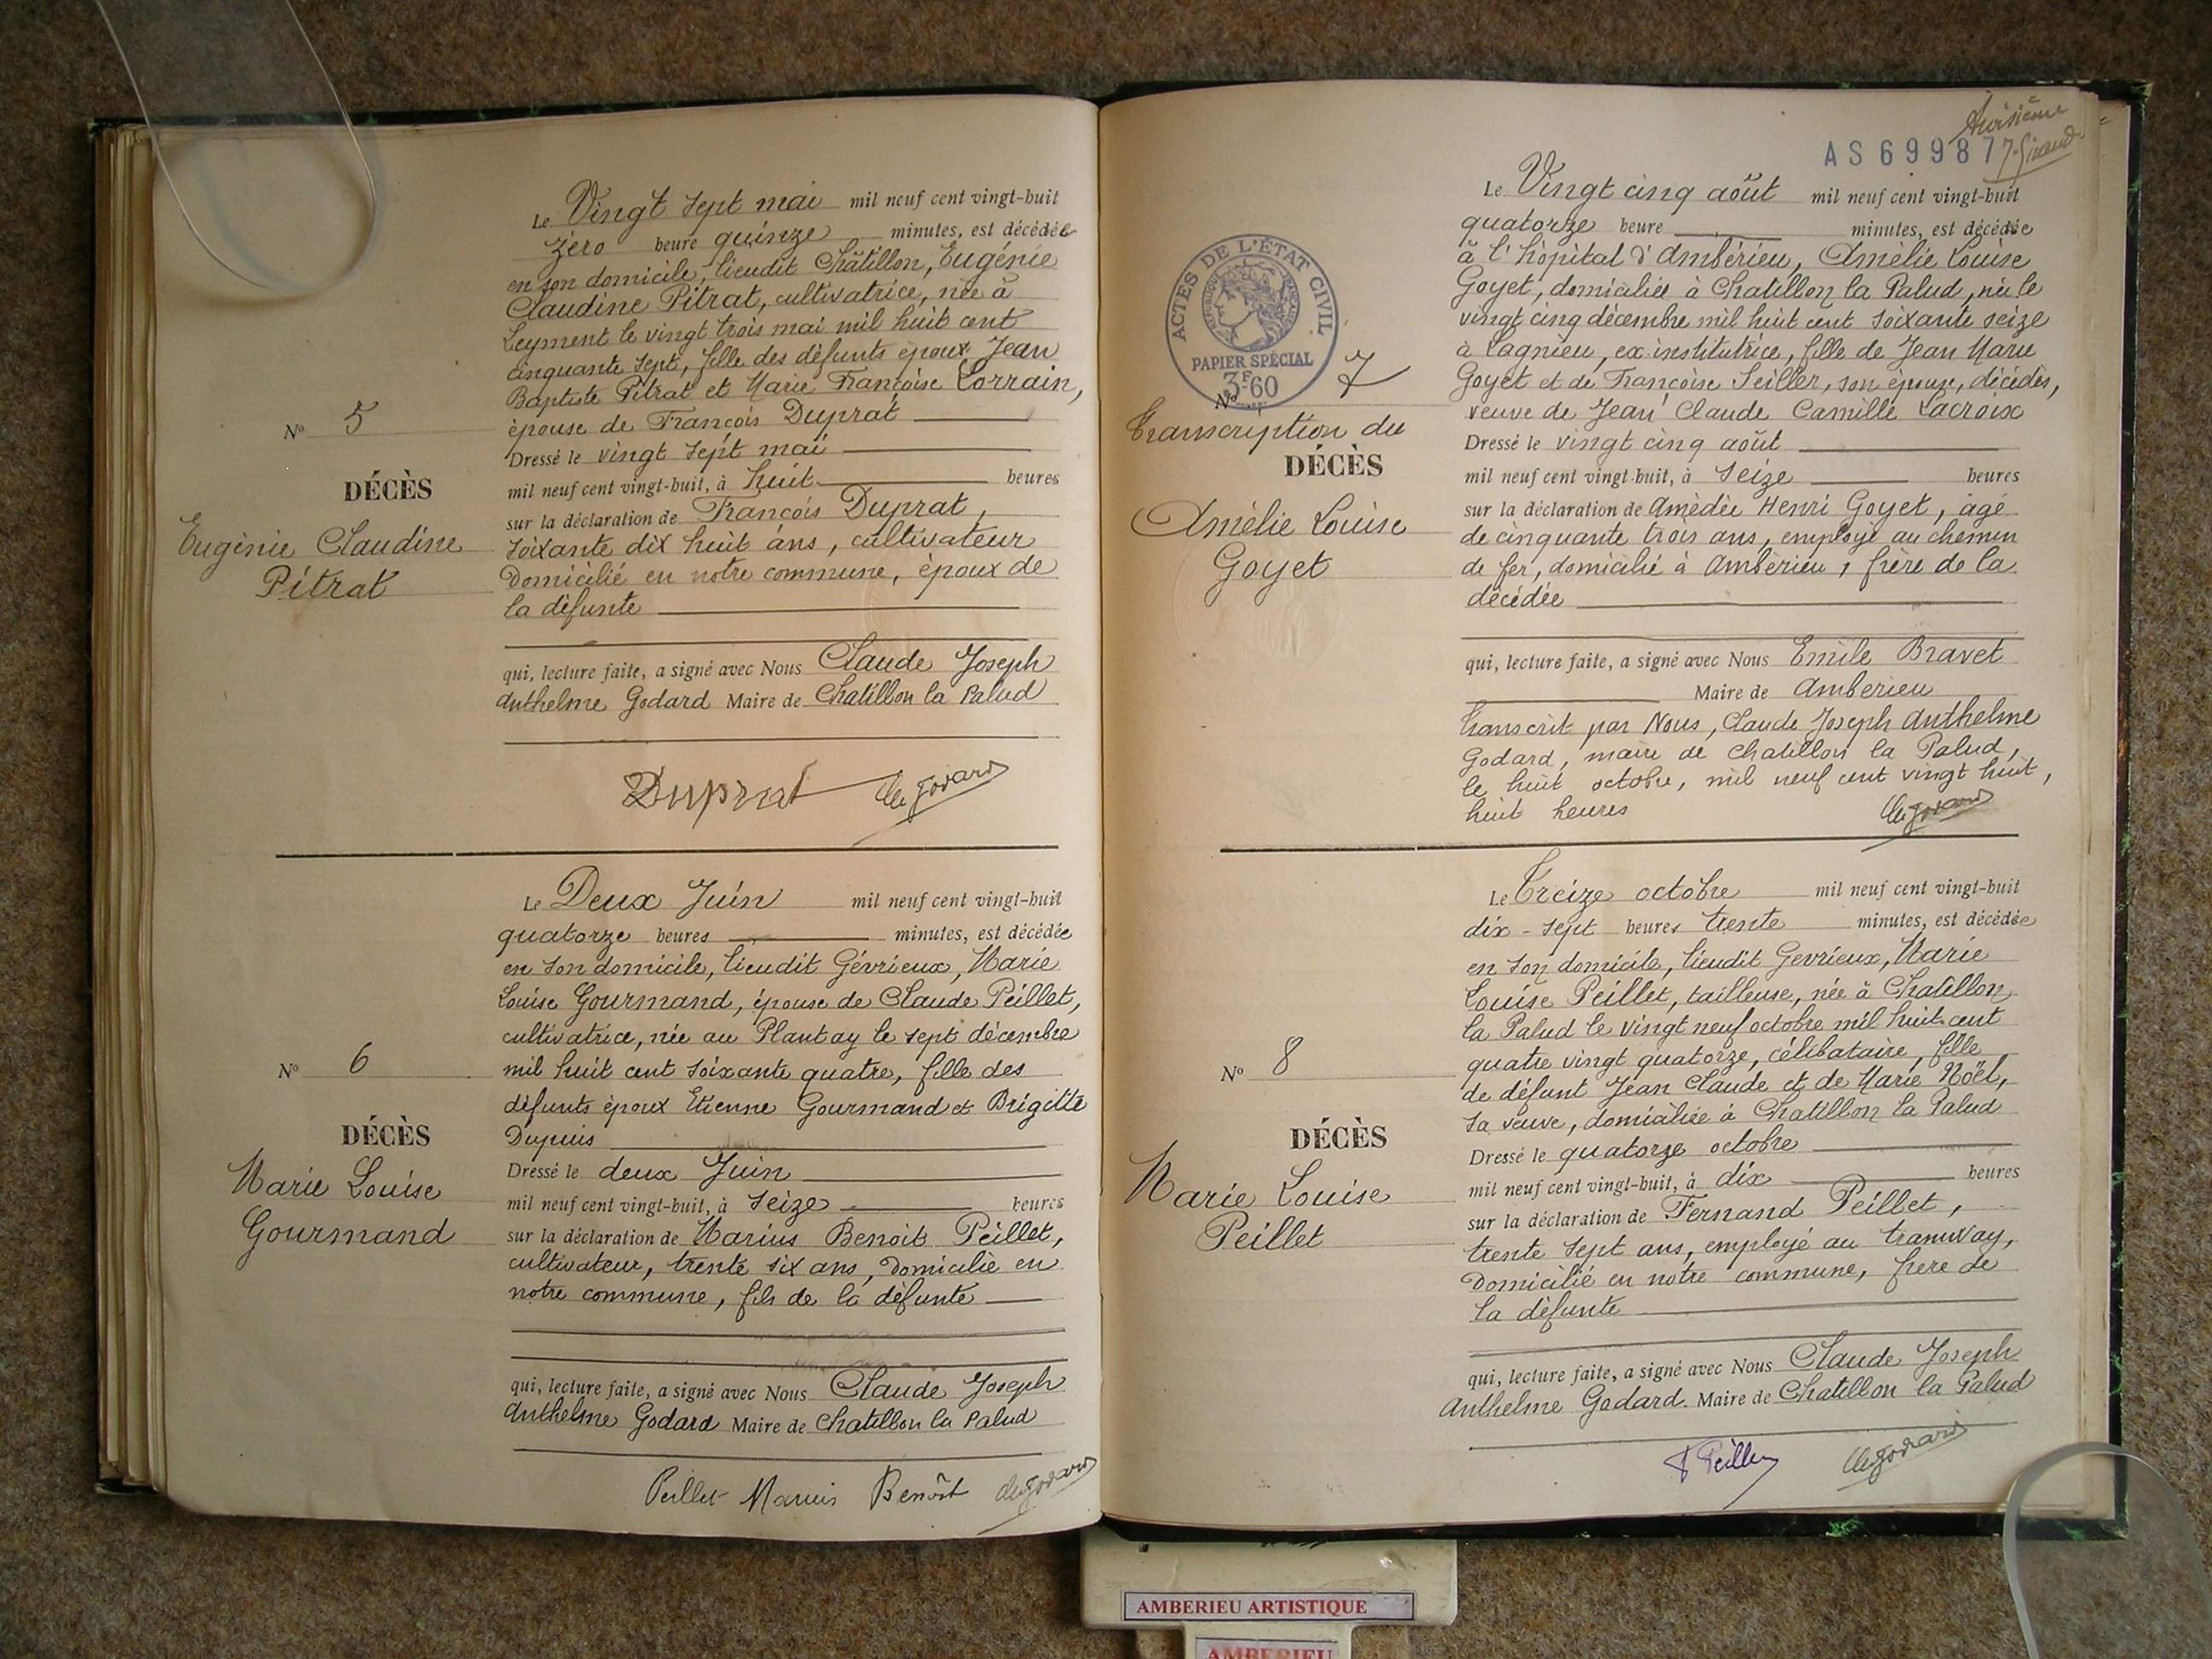 Le Vingt sept mai mil neuf cent vingt-huit
zéro heure quinze minutes, est décédée
en son domicile, lieudit Châtillon, Eugénie
Claudine Pitrat, cultivatrice, née à
Leyment le vingt trois mai mil huit cent
cinquante sept, fille des défunts époux Jean
Baptiste Pitrat et Marie Françoise Lorrain,
épouse de François Duprat
Dressé le vingt sept mai
mil neuf cent vingt-huit, à huit heures
sur la déclaration de François Duprat,
soixante dix huit ans, cultivateur
domicilié en notre commune, époux de
la défunte
qui, lecture faite, a signé avec Nous Claude Joseph
Anthelme Godard Maire de Chatillon la Palud
Duprat Cl. Godard
N° 5
DÉCÈS
Eugénie Claudine
Pitrat
Le Deux Juin mil neuf cent vingt-huit
quatorze heures minutes, est décédée
en son domicile, lieudit Gévrieux, Marie
Louise Gourmand, épouse de Claude Peillet,
cultivatrice, née au Plantay le sept décembre
mil huit cent soixante quatre, fille des
défunts époux Etienne Gourmand et Brigitte
Dupuis
Dressé le deux Juin
mil neuf cent vingt-huit, à seize heures
sur la déclaration de Marius Benoit Peillet,
cultivateur, trente six ans, domicilié en
notre commune, fils de la défunte
qui, lecture faite, a signé avec Nous Claude Joseph
Anthelme Godard Maire de Chatillon la Palud
Peillet Marius Benoît Cl. Godard
N° 6
DÉCÈS
Marie Louise
Gourmand
troisième
AS 69987
Le Vingt cinq août mil neuf cent vingt-huit
quatorze heure minutes, est décédée
à l'hôpital d'Ambérieu, Amélie Louise
Goyet, domiciliée à Chatillon la Palud, née le
vingt cinq décembre mil huit cent soixante seize
à Lagnieu, ex institutrice, fille de Jean Marie
Goyet et de Françoise Seiller, son épouse, décédés,
veuve de Jean Claude Camille Lacroix
Dressé le vingt cinq août
mil neuf cent vingt-huit, à seize heures
sur la déclaration de Amédée Henri Goyet, âgé
de cinquante trois ans, employé au chemin
de fer, domicilié à Ambérieu, frère de la
décédée
qui, lecture faite, a signé avec Nous Emile Bravet
Maire de Amberieu
Transcrit par Nous, Claude Joseph Anthelme
Godard, maire de Chatillon la Palud,
le huit octobre, mil neuf cent vingt huit,
huit heures Cl. Godard
ACTES DE L'ÉTAT CIVIL
RÉPUBLIQUE FRANÇAISE
PAPIER SPÉCIAL
3F60
N° 7
Transcription du
DÉCÈS
Amélie Louise
Goyet
Le Treize octobre mil neuf cent vingt-huit
dix-sept heures trente minutes, est décédée
en son domicile, lieudit Gevrieux, Marie
Louise Peillet, tailleuse, née à Chatillon
la Palud le vingt neuf octobre mil huit cent
quatre vingt quatorze, célibataire, fille
de défunt Jean Claude et de Marie Noël,
sa veuve, domiciliée à Chatillon la Palud
Dressé le quatorze octobre
mil neuf cent vingt-huit, à dix heures
sur la déclaration de Fernand Peillet,
trente sept ans, employé au tramway,
domicilié en notre commune, frère de
la défunte
qui, lecture faite, a signé avec Nous Claude Joseph
Anthelme Godard Maire de Chatillon la Palud
F Peillet Cl. Godard
N° 8
DÉCÈS
Marie Louise
Peillet
AMBERIEU ARTISTIQUE
AMBERIEU